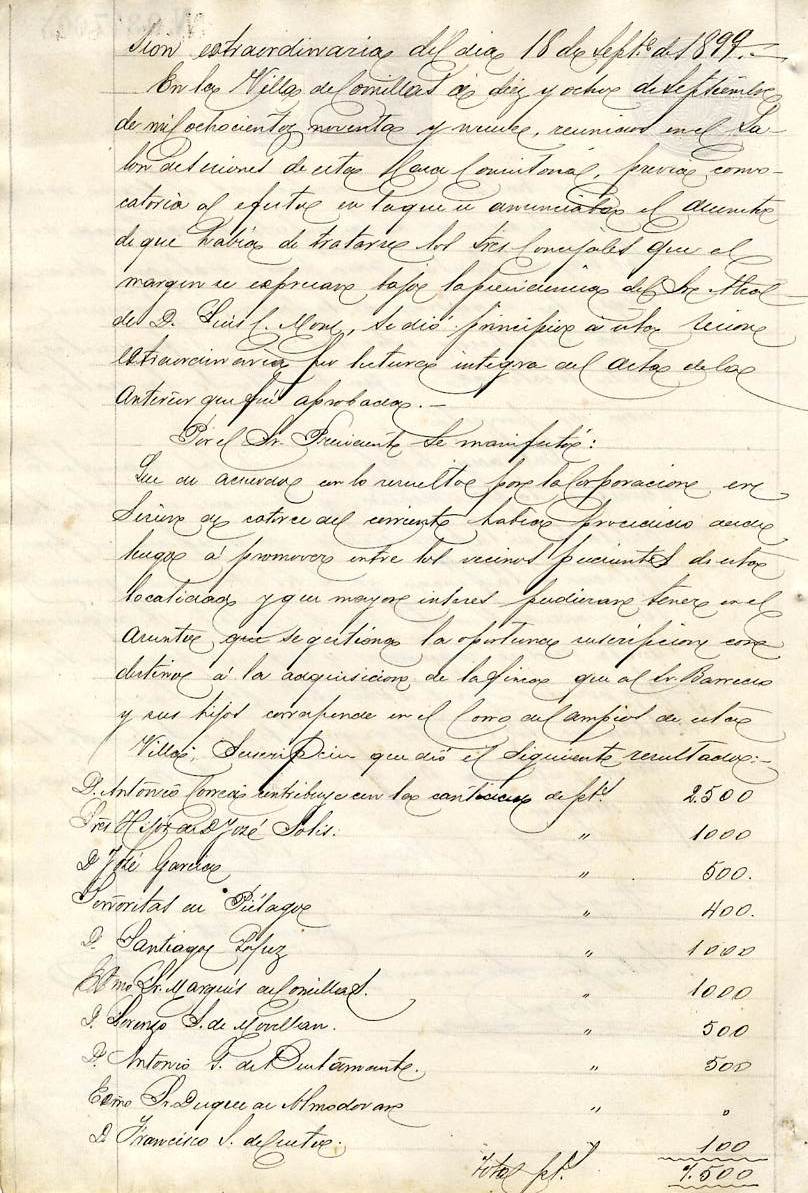 sion extraordinaria del dia 18 de Septe. de 1899.-
En la Villa de Comillas á diez y ocho de Septiembre
de mil ochocientos noventa y nueve, reunidos en el Sa-
lon de seciones de esta Casa Consistorial, previa convo-
catoria al efecto en la que se anunciaba el asunto
de que había de tratarse los Sres Concejales que al
margen se expresan bajo la presidencia del Sr. Alcal-
de D. Luis C. Mone, se dió principio á esta secion
extraordinaria por lectura integra del acta de la
Anterior que fué aprobada.-
Por el Sr. Presidente se manifestó:
Que de acuerdo con lo resuelto por la Corporacion en
Secion de catorce del corriente había procedido desde
luego á promover entre los vecinos pudientes de esta
localidad y que mayor interes pudieran tener en el
asunto que se gestiona la oportuna suscripcion con
destino á la adquisicion de la finca que al Sr. Barreda
y sus hijos corresponde en el Corro de Campios de esta
Villa, Suscripcion que dió el siguiente resultado:-
D. Antonio Correa contribuye con la cantidad de pts. 2.500
Sres Hijos de D José Solis: " 1000
D José Garcia " 500.
Señoritas de Piélago " 400.
D. Santiago Lopez " 1000
Excmo Sr. Marqués de Comillas. " 1000
D. Lorenzo S. de Movellan. " 500
D. Antonio G. de Bustamante. " 500
Excmo Sr. Duque de Almodovar " "
D Francisco S. de Cueto. " 100
Total pts. 7.500